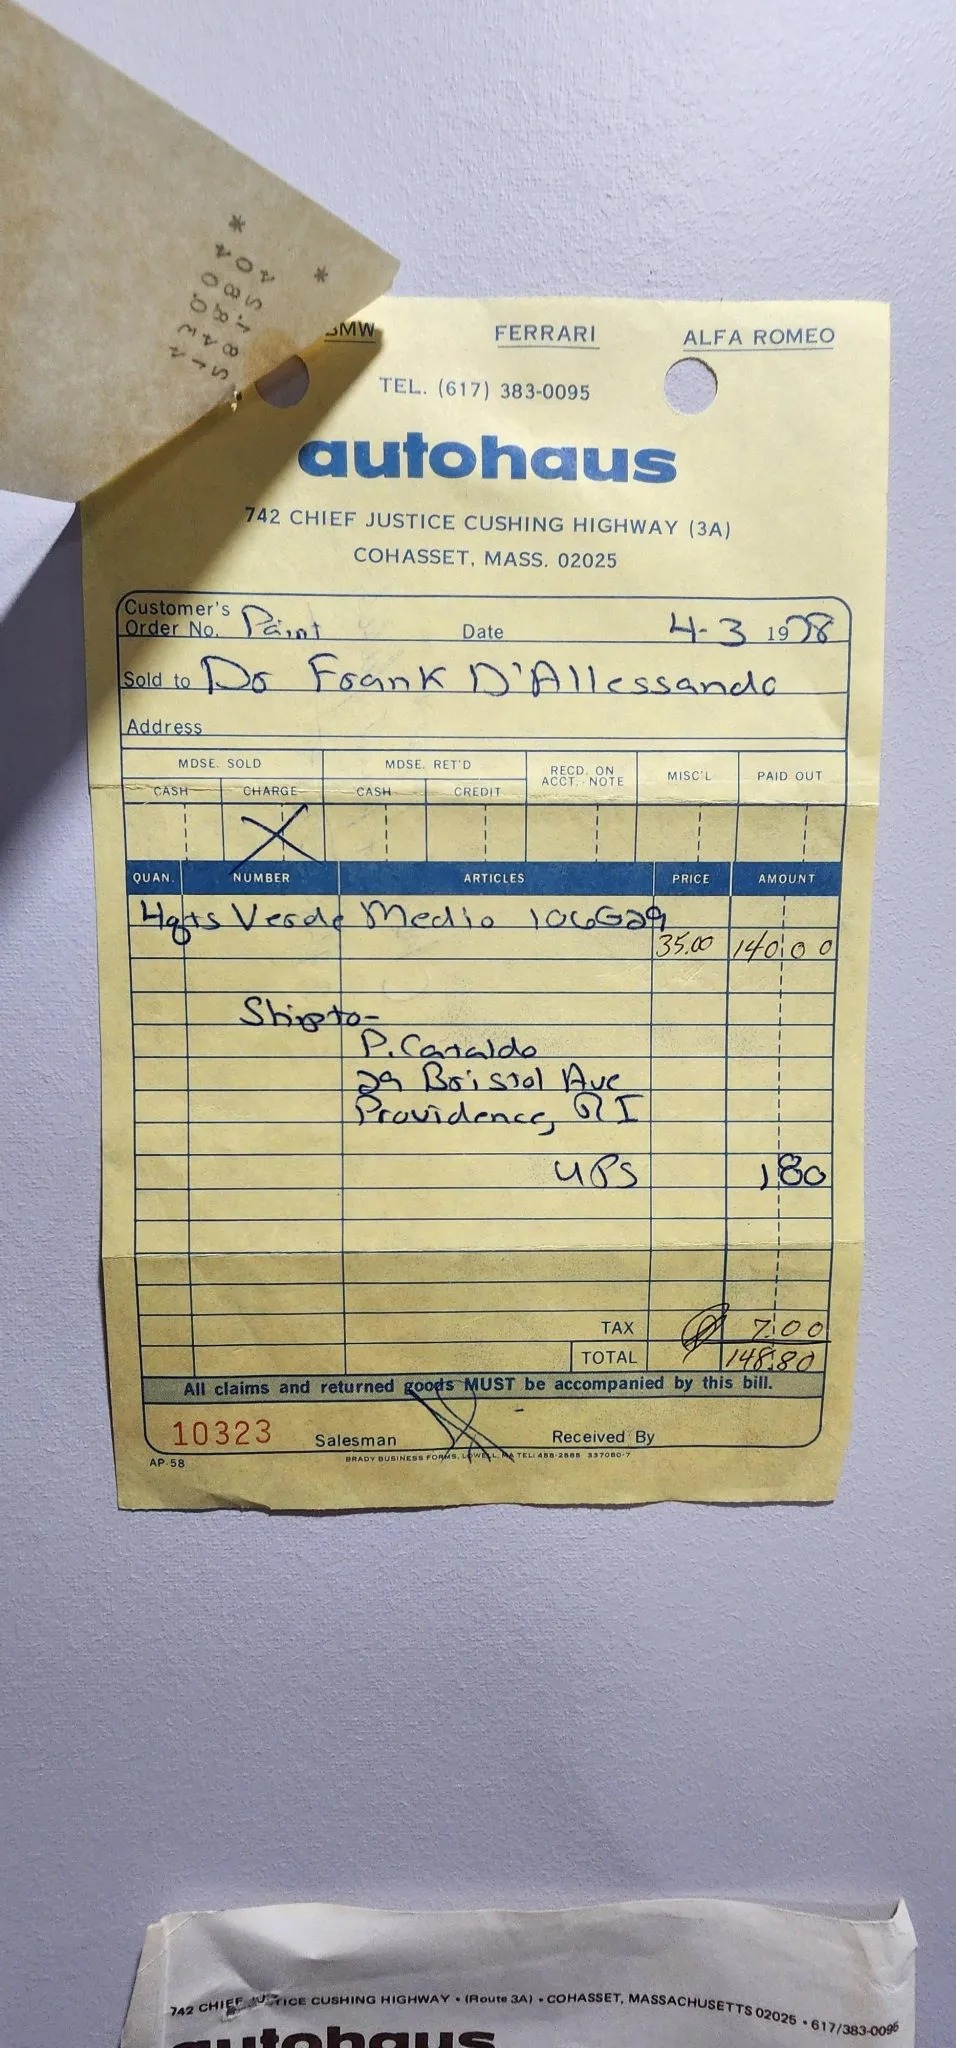 BMW FERRARI ALFA ROMEO
TEL. (617) 383-0095
autohaus
742 CHIEF JUSTICE CUSHING HIGHWAY (3A)
COHASSET, MASS. 02025
Customer's
Order No. Paint Date 4-3 1978
Sold to Dr Frank D'Allessando
Address
MDSE. SOLD MDSE. RET'D RECD. ON ACCT. - NOTE MISC'L PAID OUT
CASH CHARGE CASH CREDIT
X
QUAN. NUMBER ARTICLES PRICE AMOUNT
4qts Verde Medio 106G29
35.00 140.00
Ship to-
P. Cataldo
29 Bristol Ave
Providence, RI
UPS 1 80
TAX 7.00
TOTAL 148.80
All claims and returned goods MUST be accompanied by this bill.
10323 Salesman Received By
AP-58 BRADY BUSINESS FORMS, LOWELL, MA TEL: 458-2585 337080-7
742 CHIEF JUSTICE CUSHING HIGHWAY • (Route 3A) • COHASSET, MASSACHUSETTS 02025 • 617/383-0095
autohaus